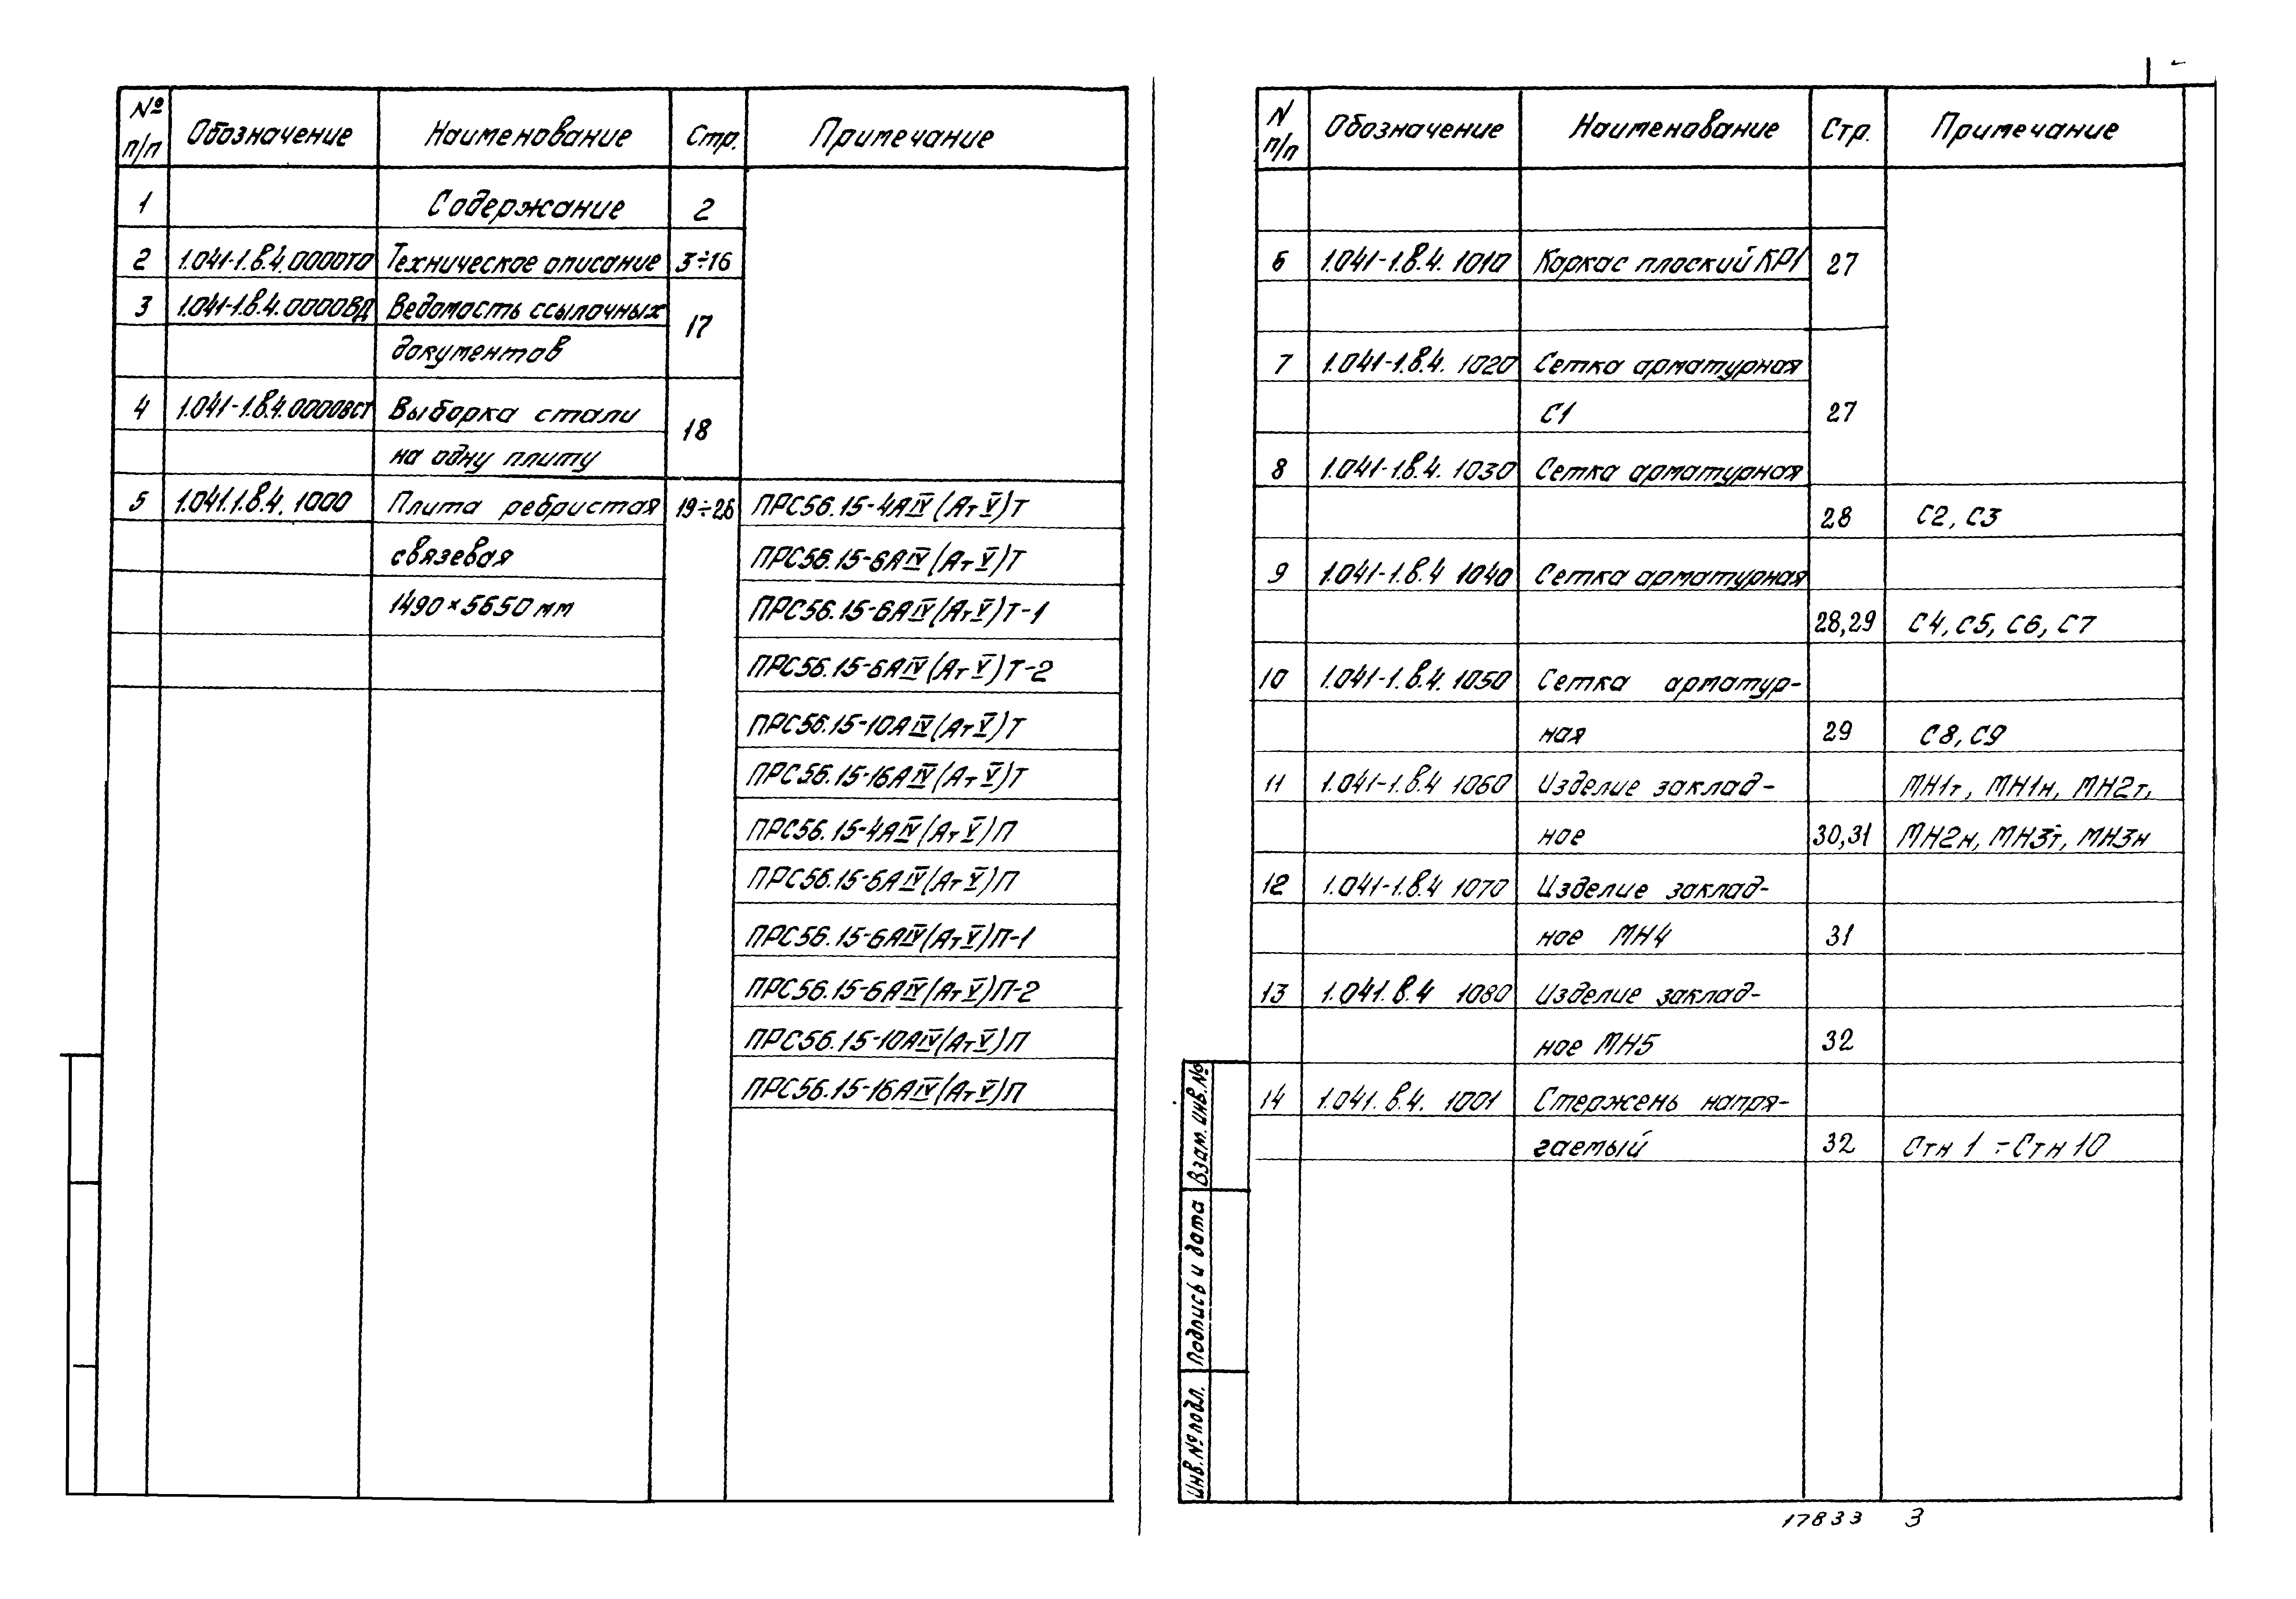 № п/п Обозначение Наименование Стр. Примечание
1 Содержание 2
2 1.041-1.в.4.0000ТО Техническое описание 3÷16
3 1.041-1.в.4.0000ВД Ведомость ссылочных
документов 17
4 1.041-1.в.4.0000ВСТ Выборка стали
на одну плиту 18
5 1.041.1.в.4. 1000 Плита ребристая 19÷26 ПРС56.15-4АIV(АтV)Т
связевая ПРС56.15-6АIV(АтV)Т
1490×5650мм ПРС56.15-6АIV(АтV)Т-1
ПРС56.15-6АIV(АтV)Т-2
ПРС56.15-10АIV(АтV)Т
ПРС56.15-16АIV(АтV)Т
ПРС56.15-4АIV(АтV)П
ПРС56.15-6АIV(АтV)П
ПРС56.15-6АIV(АтV)П-1
ПРС56.15-6АIV(АтV)П-2
ПРС56.15-10АIV(АтV)П
ПРС56.15-16АIV(АтV)П
N п/п Обозначение Наименование Стр. Примечание
6 1.041-1.в.4. 1010 Каркас плоский КР1 27
7 1.041-1.в.4. 1020 Сетка арматурная
С1 27
8 1.041-1.в.4. 1030 Сетка арматурная
28 С2, С3
9 1.041-1.в.4 1040 Сетка арматурная
28,29 С4, С5, С6, С7
10 1.041-1.в.4. 1050 Сетка арматур-
ная 29 С8, С9
11 1.041-1.в.4 1060 Изделие заклад- МН1т, МН1н, МН2т,
ное 30,31 МН2н, МН3т, МН3н
12 1.041-1.в.4 1070 Изделие заклад-
ное МН4 31
13 1.041.в.4 1080 Изделие заклад-
ное МН5 32
14 1.041.в.4. 1001 Стержень напря-
гаемый 32 Стн 1 ÷ Стн 10
Взам. инв. №
Подпись и дата
Инв. № подл.
17833 3